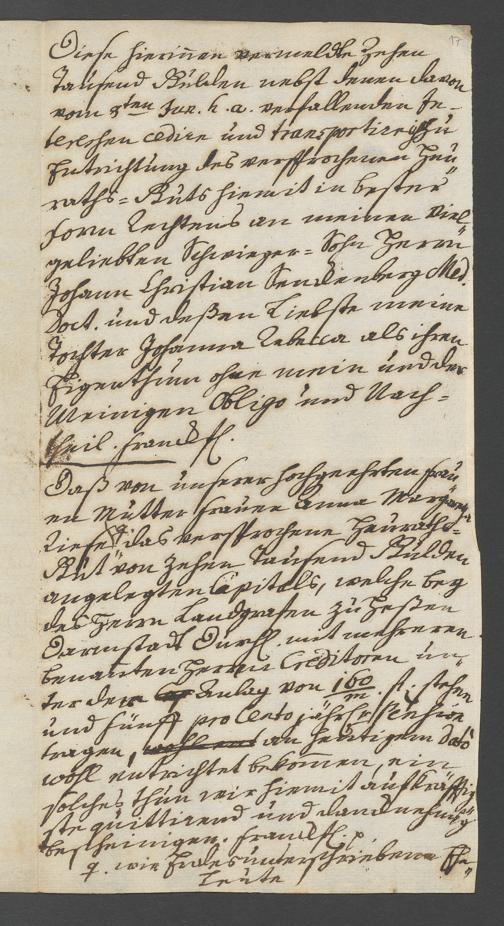 17
Diese hierinnen vermeldte Zehen
Tausend Gulden nebst denen davon
vom 3ten Jan. h. a. verfallenden In-
teressen cedire und transportire ich zu
Entrichtung des versprochenen Heu
raths-Guts hiemit in bester
Form Rechtens an meinen Viel
geliebten Schwieger-Sohn Herrn
Johann Christian Senckenberg Med.
Doct. und deßen Liebste meine
Tochter Johanna Rebecca als ihren
Eigenthum ohne mein und der
Meinigen Obligo und Nach-
theil. Franckf.
Daß von unserer hochgeehrten Frau
en Mutter Frauen Anna Margaretha
das versprochene Heuraths-
Gut von Zehen Tausend Gulden
angelegten Capitals, welche bey
des Herrn Landgrafen zu Heßen
Darmstadt Durchl. mit mehreren
benanten Herrn Creditoren un-
ter dem Anlag von 100/m fl. stehen
und fünff pro Cento jährl.
tragen, an heutigem Dato
wohl entrichtet bekommen, ein
solches thun wir hiemit aufkräfftig
ste quittirend und dancknehmig
bescheinigen. Franckf. p.
wir Endesunterschriebene Ehe-
Leute